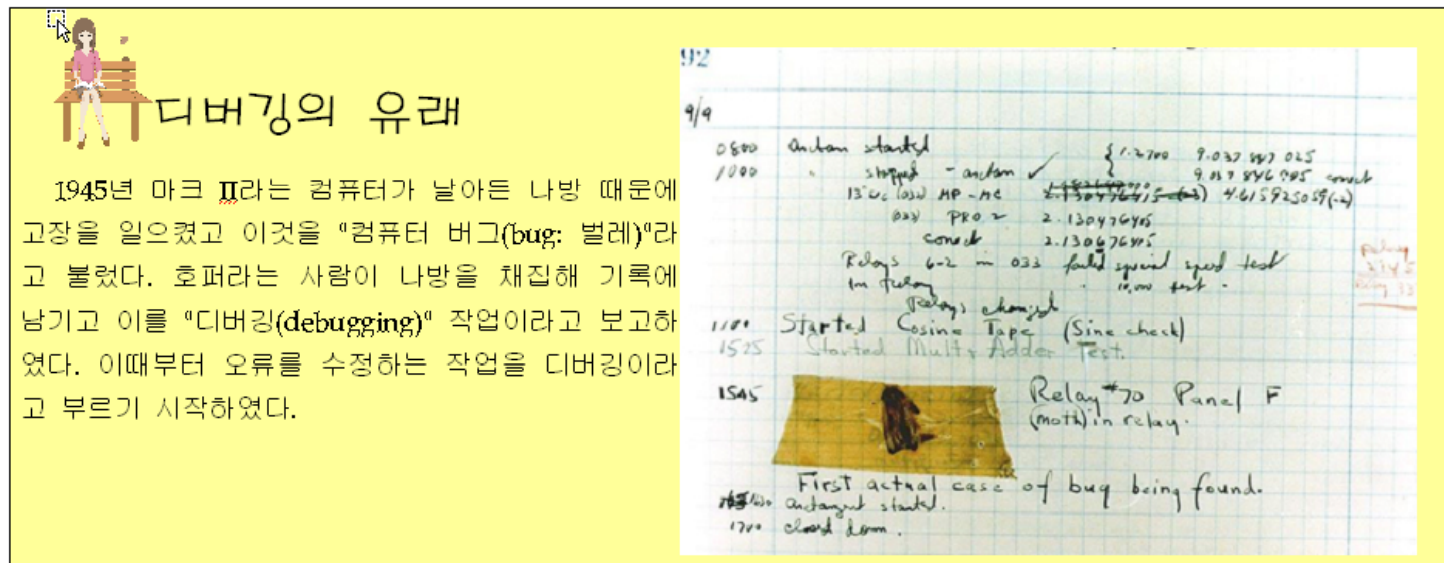 디버깅의 유래
1945년 마크 II라는 컴퓨터가 날아든 나방 때문에
고장을 일으켰고 이것을 "컴퓨터 버그(bug: 벌레)"라
고 불렀다. 호퍼라는 사람이 나방을 채집해 기록에
남기고 이를 "디버깅(debugging)" 작업이라고 보고하
였다. 이때부터 오류를 수정하는 작업을 디버깅이라
고 부르기 시작하였다.
92
9/9
0800 Antan started { 1.2700 9.037 847 025
1000 " stopped - antan ✓ { 9.037 846 995 correct
13"uc (032) MP - MC 4.615925059(-2)
(033) PRO 2 2.130476415
correct 2.130676415
Relays 6-2 in 033 failed special speed test
in relay " 10,000 test .
Relays changed
1100 Started Cosine Tape (Sine check)
1525 Started Mult + Adder Test.
1545 Relay #70 Panel F
(moth) in relay.
First actual case of bug being found.
1630 antangent started.
1700 closed down .